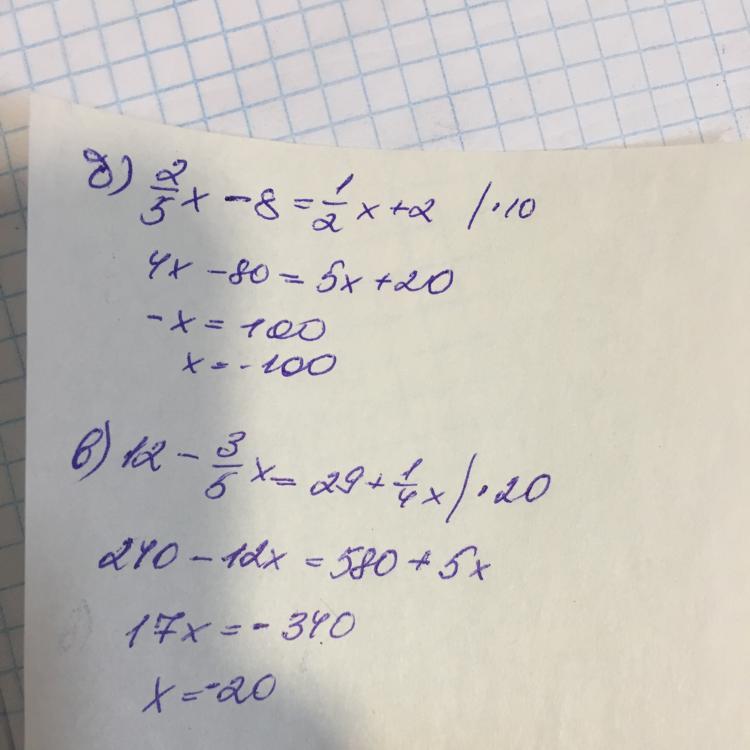 б) 2/5 x - 8 = 1/2 x + 2 / · 10
4x - 80 = 5x + 20
-x = 100
x = -100
в) 12 - 3/5 x = 29 + 1/4 x / · 20
240 - 12x = 580 + 5x
17x = - 340
x = -20